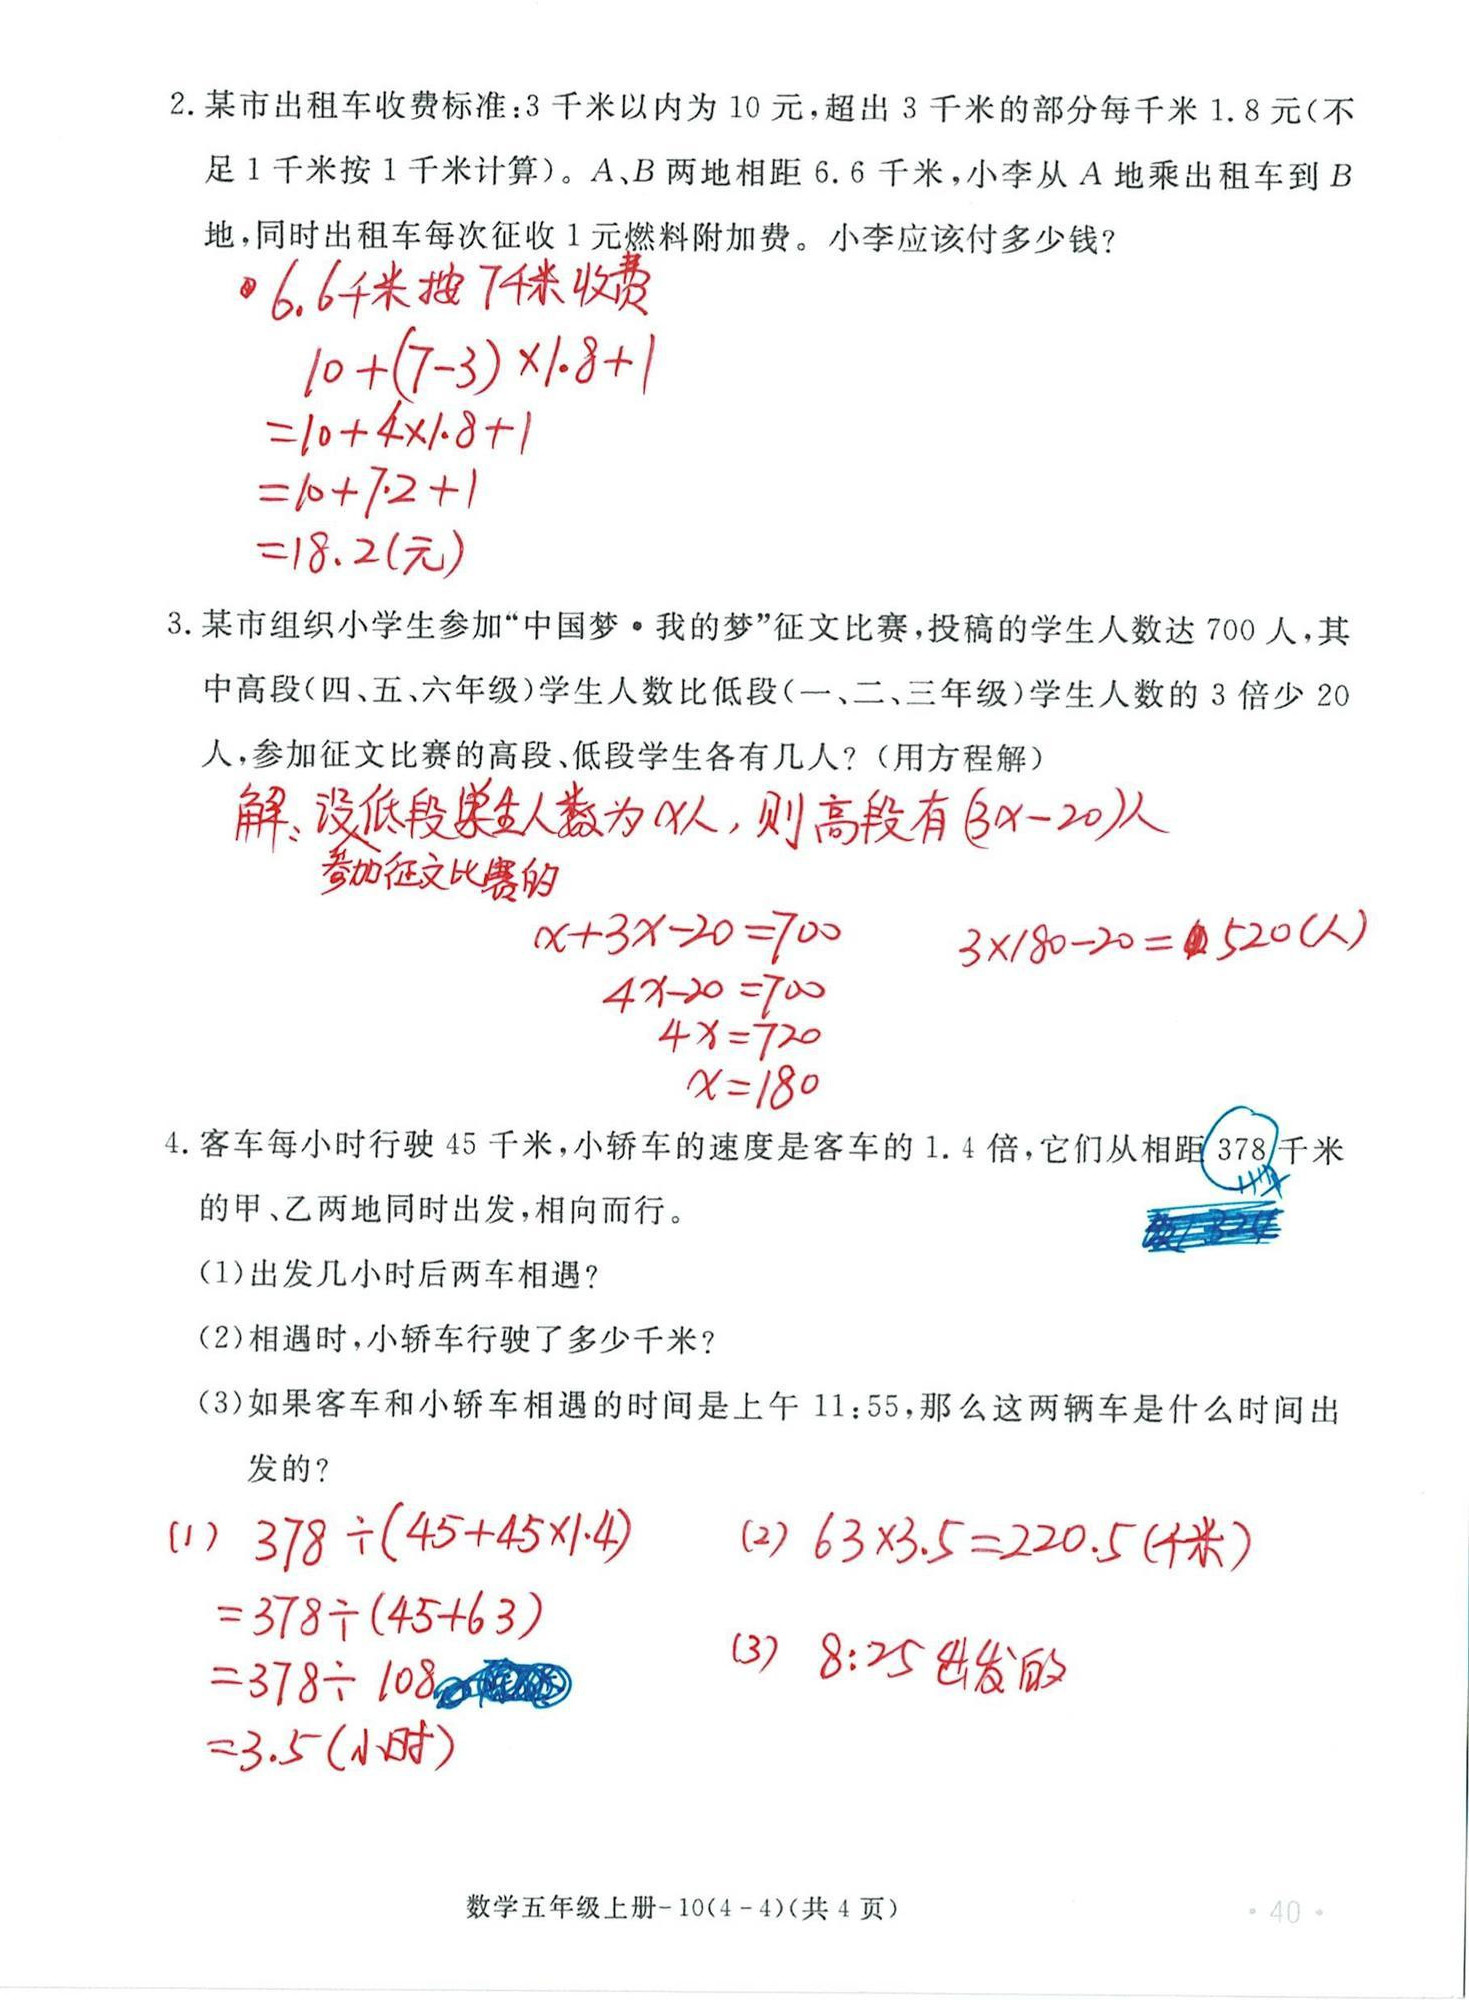 2. 某市出租车收费标准:3 千米以内为 10 元,超出 3 千米的部分每千米 1.8 元(不
足 1 千米按 1 千米计算)。A、B 两地相距 6.6 千米,小李从 A 地乘出租车到 B
地,同时出租车每次征收 1 元燃料附加费。小李应该付多少钱?
6.6千米按7千米收费
10+(7-3)×1.8+1
=10+4×1.8+1
=10+7.2+1
=18.2(元)
3. 某市组织小学生参加“中国梦·我的梦”征文比赛,投稿的学生人数达 700 人,其
中高段(四、五、六年级)学生人数比低段(一、二、三年级)学生人数的 3 倍少 20
人,参加征文比赛的高段、低段学生各有几人?(用方程解)
解:设低段学生人数为x人,则高段有(3x-20)人
参加征文比赛的
x+3x-20=700
3×180-20=520(人)
4x-20=700
4x=720
x=180
4. 客车每小时行驶 45 千米,小轿车的速度是客车的 1.4 倍,它们从相距 378 千米
的甲、乙两地同时出发,相向而行。
324
(1)出发几小时后两车相遇?
(2)相遇时,小轿车行驶了多少千米?
(3)如果客车和小轿车相遇的时间是上午 11:55,那么这两辆车是什么时间出
发的?
(1) 378÷(45+45×1.4)
=378÷(45+63)
=378÷108
=3.5(小时)
(2) 63×3.5=220.5(千米)
(3) 8:25出发的
数学五年级上册-10(4-4)(共 4 页)
·40·